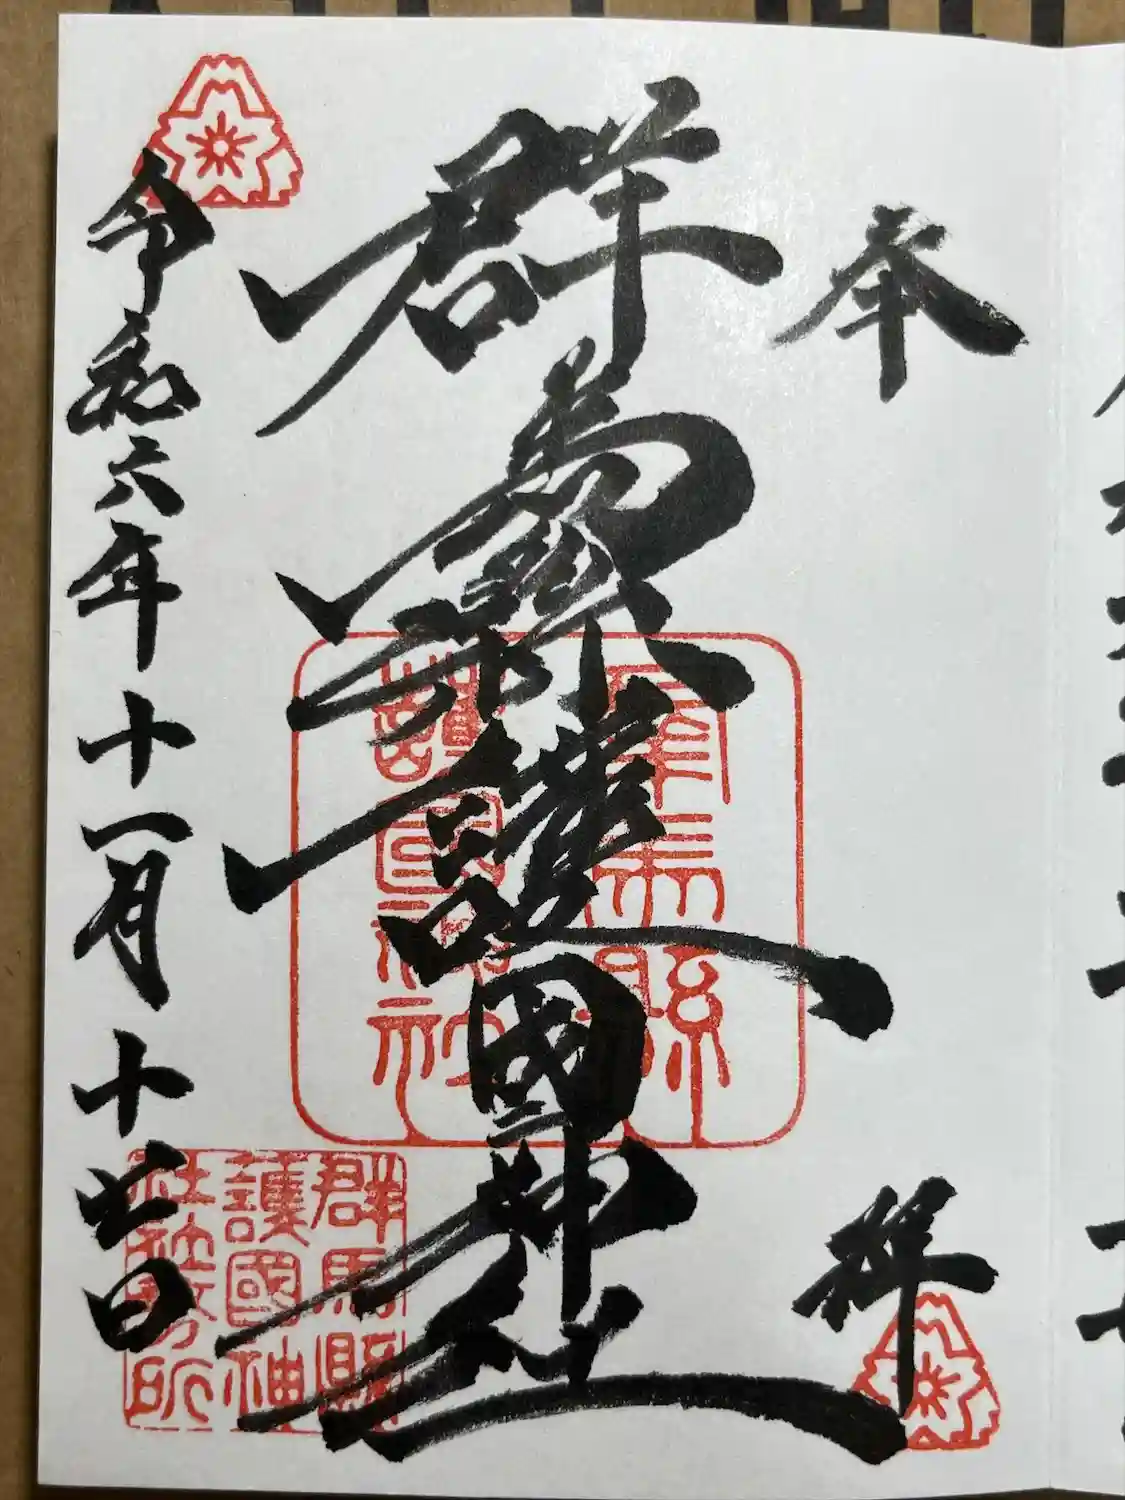 奉拝
群馬縣護國神社
令和六年十一月十日
群馬縣
護國神社
群馬縣
護國神
社社務所